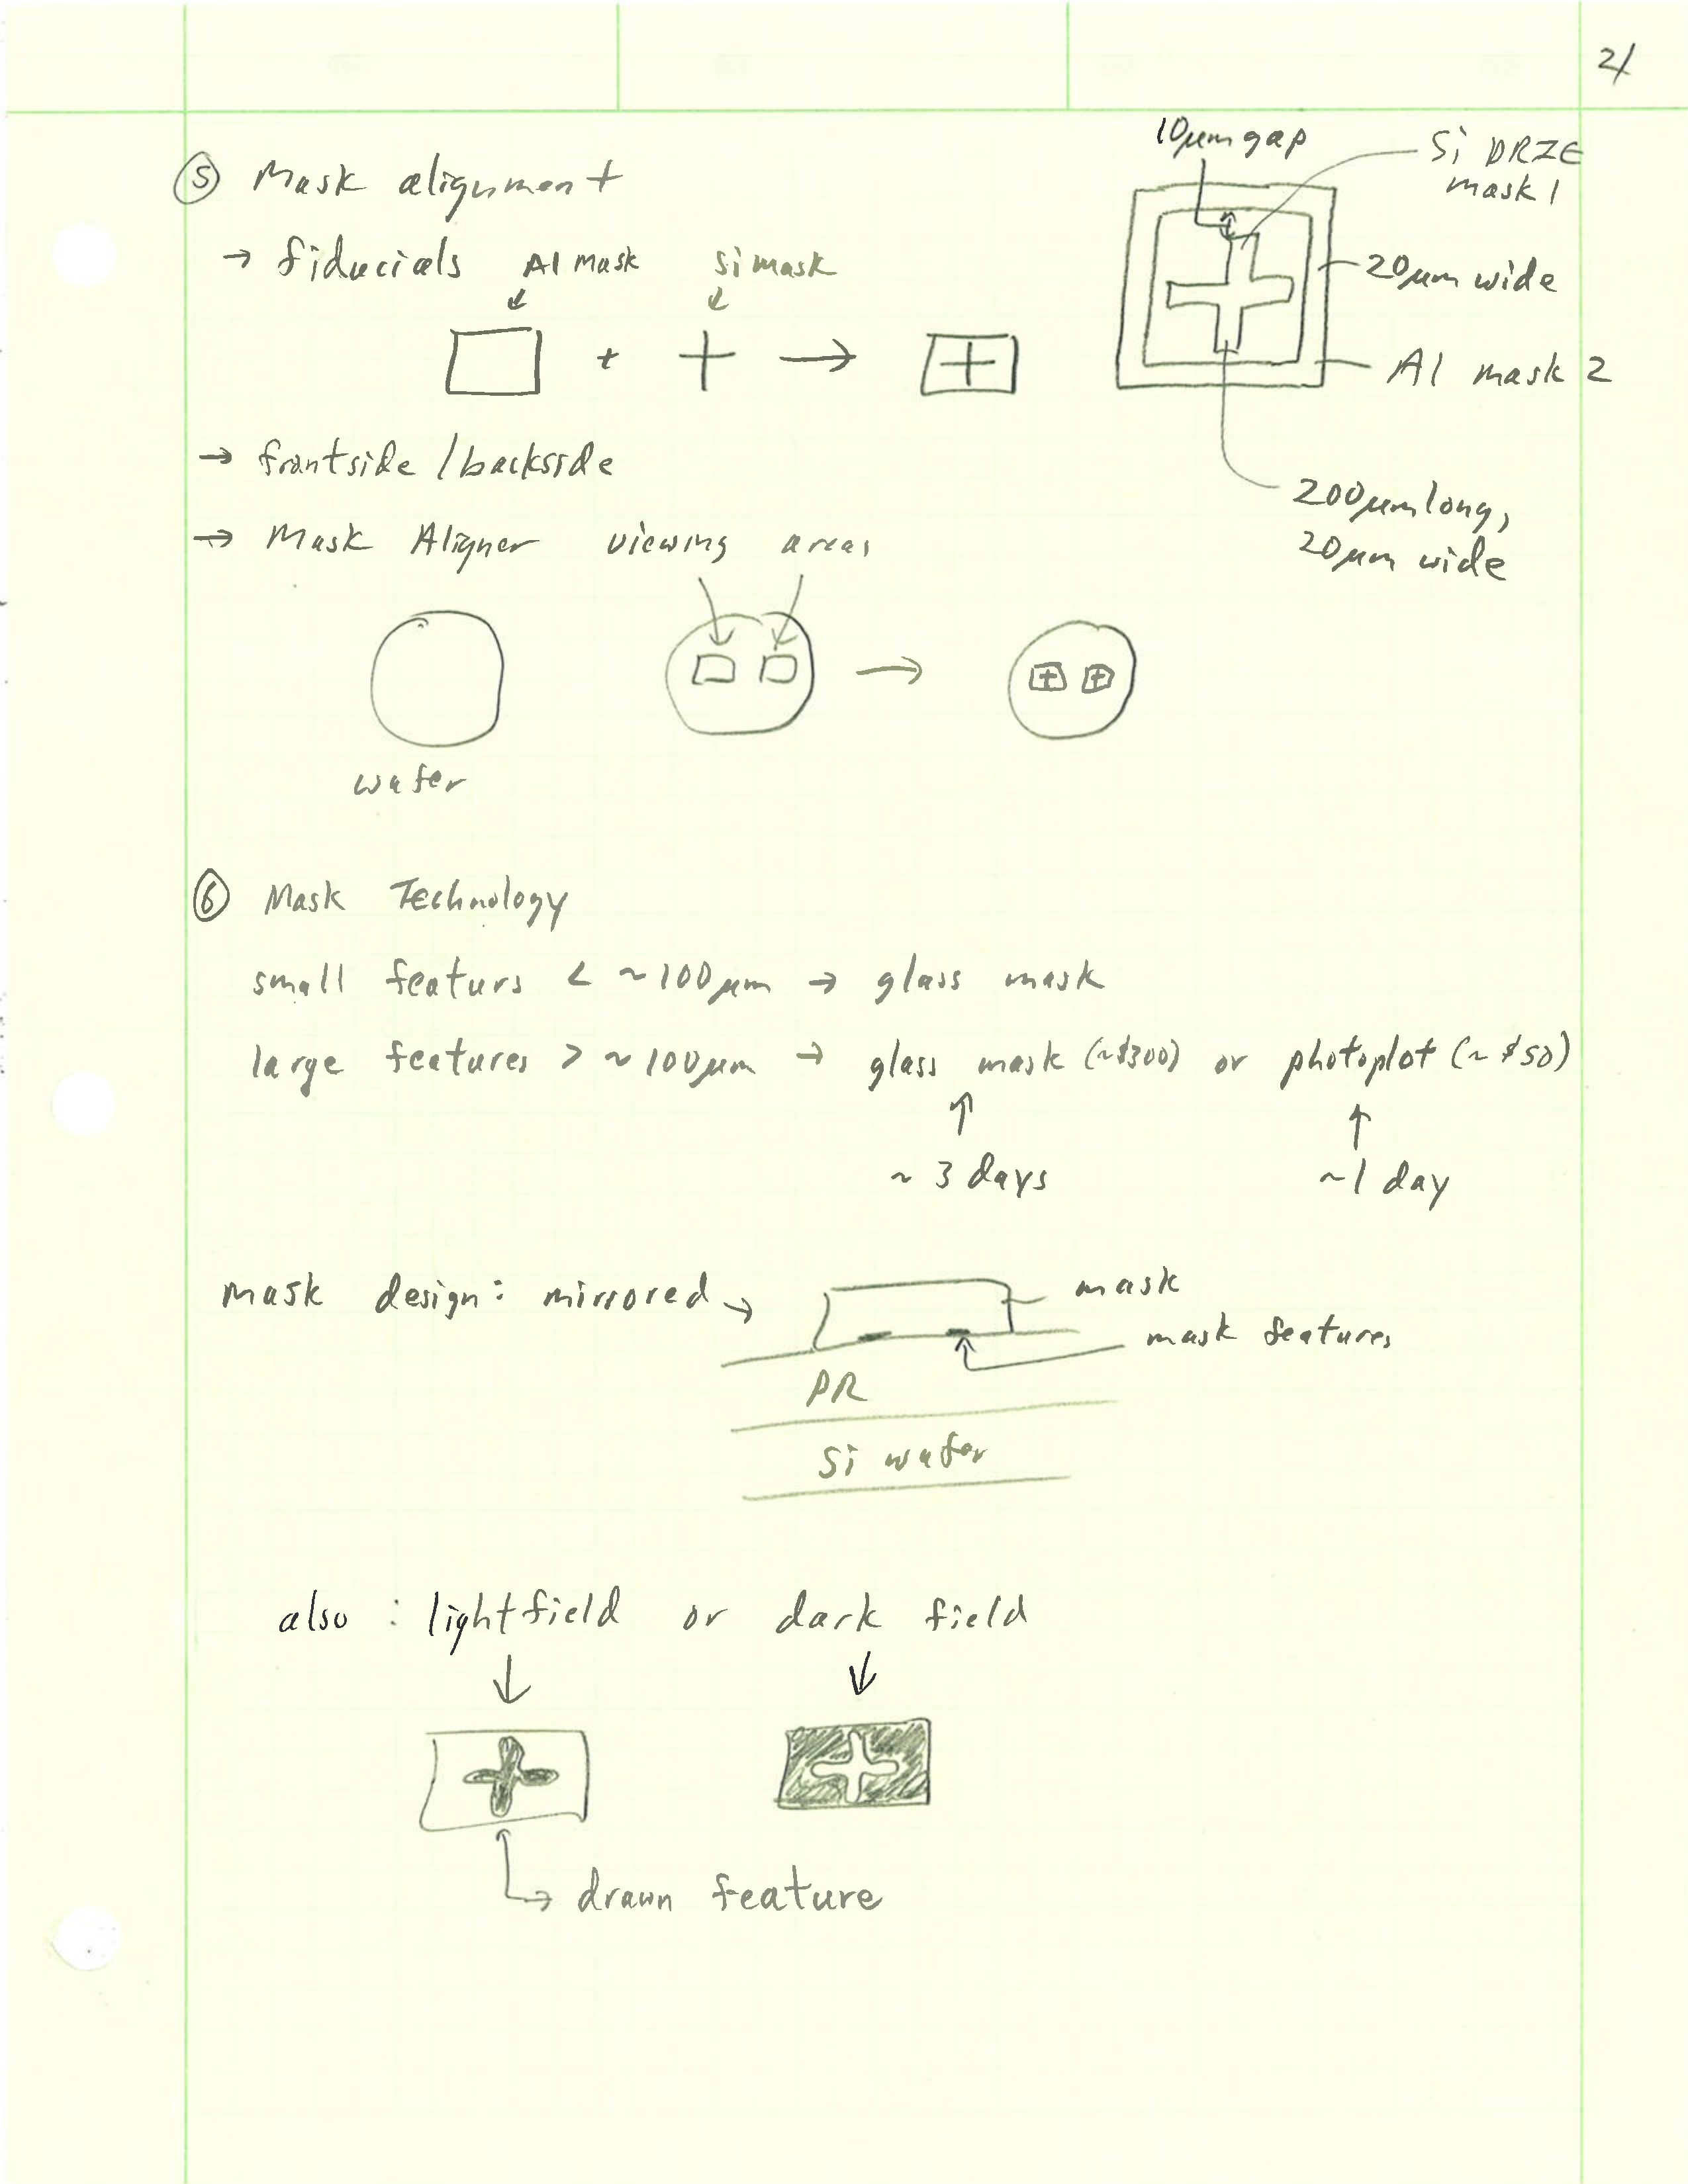 2/
⑤ Mask alignment
→ fiducials Al Mask Si mask
+ →
10µm gap
Si DRIE
mask 1
20µm wide
Al mask 2
200µm long,
20µm wide
→ frontside / backside
→ Mask Aligner viewing areas
→
wafer
⑥ Mask Technology
small featurs < ~100µm → glass mask
large features > ~100µm → glass mask (~$300) or photoplot (~$50)
~ 3 days
~1 day
mask design: mirrored →
mask
mask features
PR
Si wafer
also : lightfield or dark field
drawn feature